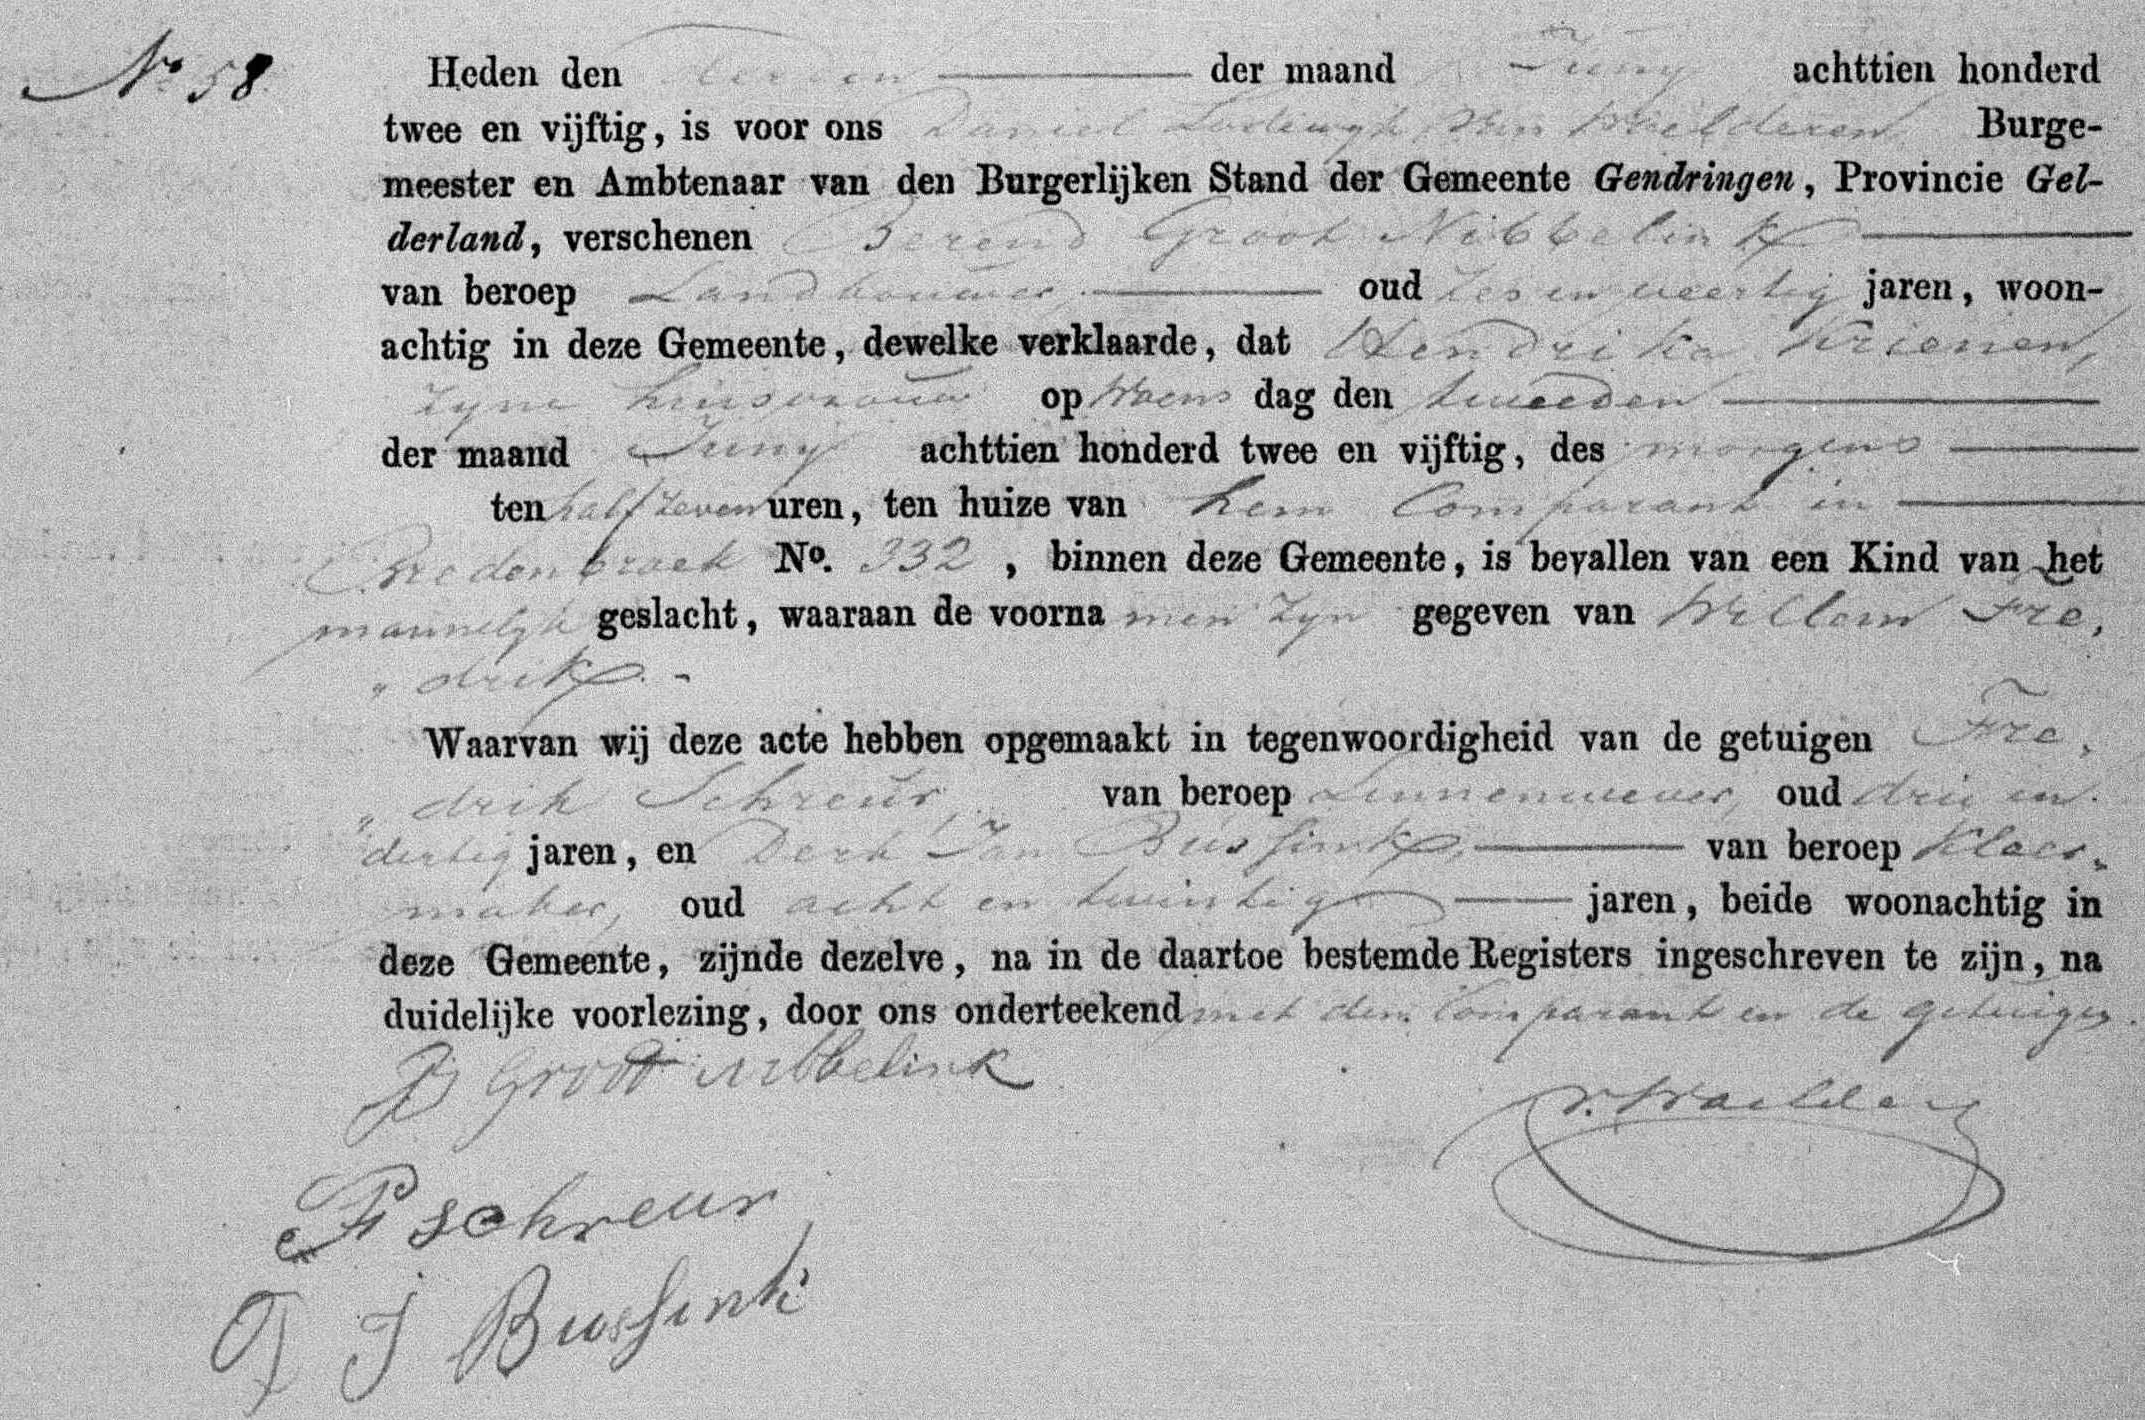 No 58 Heden den der maand Juny achttien honderd
twee en vijftig, is voor ons Daniel Lodewyk van Wielderen Burge-
meester en Ambtenaar van den Burgerlijken Stand der Gemeente Gendringen, Provincie Gel-
derland, verschenen Berend Groot Nibbelink
van beroep Landbouwer, oud zes en veertig jaren, woon-
achtig in deze Gemeente, dewelke verklaarde, dat Hendrika Krienen,
zyne huisvrouw op Woens dag den tweeden
der maand Juny achttien honderd twee en vijftig, des morgens
ten half zeven uren, ten huize van hem Comparant in
Bredenbroek No. 332, binnen deze Gemeente, is bevallen van een Kind van het
mannelyk geslacht, waaraan de voorna men zyn gegeven van Willem Fre„
„drik. -
Waarvan wij deze acte hebben opgemaakt in tegenwoordigheid van de getuigen Fre„
„drik Schreur, van beroep Linnenwever, oud drie en
dertig jaren, en Derk Jan Bussink, van beroep Kleer„
maker, oud acht en twintig jaren, beide woonachtig in
deze Gemeente, zijnde dezelve, na in de daartoe bestemde Registers ingeschreven te zijn, na
duidelijke voorlezing, door ons onderteekend met den Comparant en de getuigen.
B Groot Nibbelink
F schreur
D J Bussink